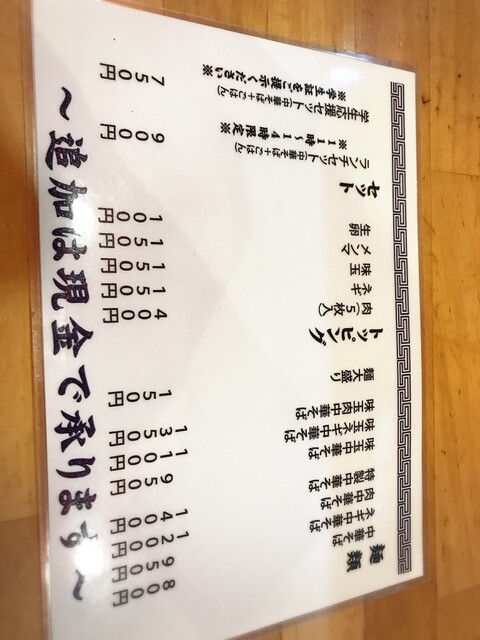 麺類
中華そば 800円
ネギ中華そば 950円
肉中華そば 1200円
特製中華そば 1400円
味玉中華そば 950円
味玉ネギ中華そば 1100円
味玉肉中華そば 1350円
麺大盛り 150円
トッピング
肉(5枚入) 400円
ネギ 150円
味玉 150円
メンマ 150円
生卵 100円
セット
ランチセット(中華そば+ごはん) 900円
※11時~14時限定※
学生応援セット(中華そば+ごはん) 750円
※学生証をご提示ください※
~追加は現金で承ります~